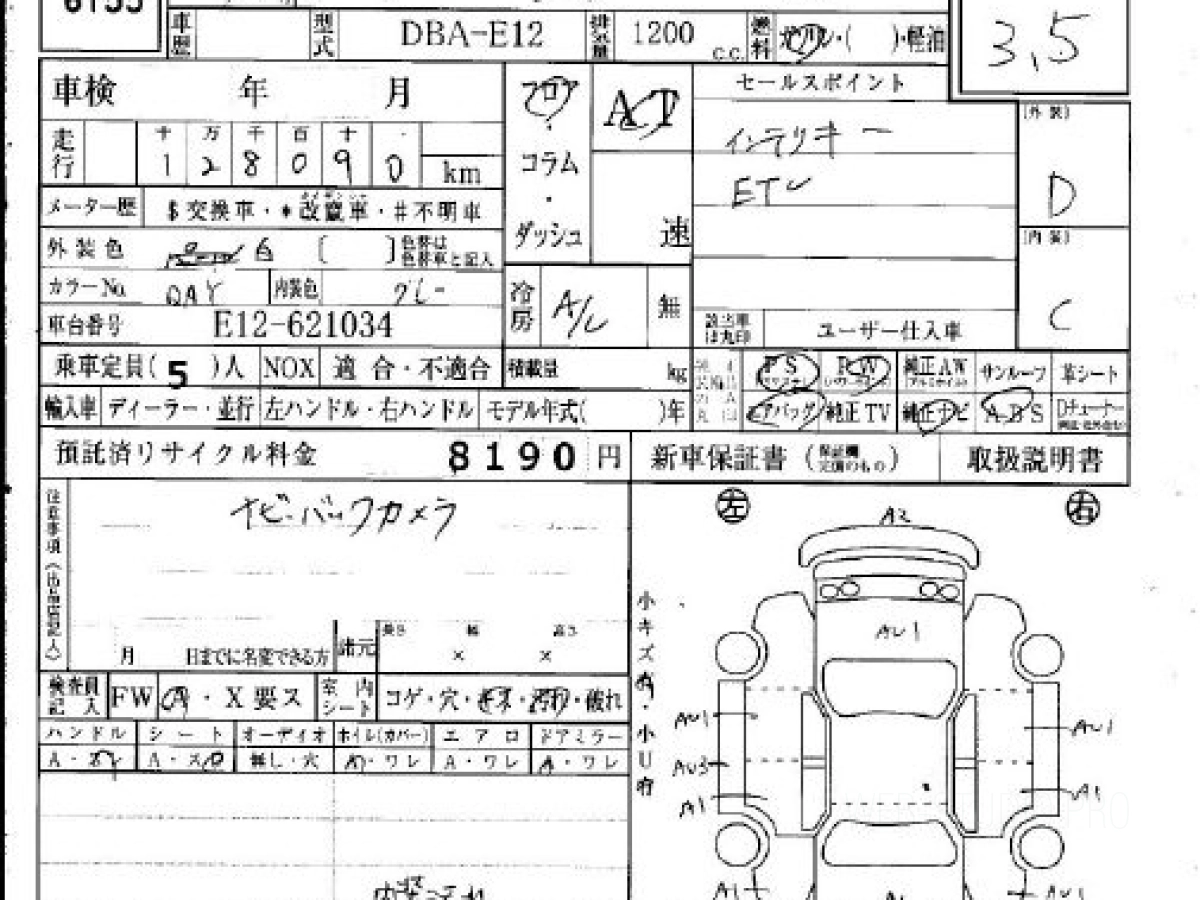 6155
車歴 型式 DBA-E12 排気量 1200 c.c. 燃料 ガソリン・( )・軽油
3,5
車検 年 月
フロア・コラム・ダッシュ
AT
速
セールスポイント
インテリキー
ETC
[外装]
D
[内装]
C
走行 十 万 千 百 十
1 2 8 0 9 0 km
メーター歴 $交換車・*改竄車・#不明車
外装色 [ ] 色替は 色替車と記入
カラーNo. QAY 内装色 グレー
車台番号 E12-621034
冷房 A/C 無
該当車は丸印 ユーザー仕入車
乗車定員( 5 )人 NOX 適合・不適合 積載量 kg
PS PW 純正AW サンルーフ 革シート
輸入車 ディーラー・並行 左ハンドル・右ハンドル モデル年式( )年
エアバッグ 純正TV 純正ナビ ABS Dチューナー
預託済リサイクル料金 8190円 新車保証書 取扱説明書
注意事項(出品店記入)
ナビ・バックカメラ
月 日までに名変できる方 諸元 長さ 幅 高さ
× ×
検査員記入 FW A・X要ス 室内シート コゲ・穴・キズ・汚れ・破れ
ハンドル シート オーディオ ホイル(カバー) エアロ ドアミラー
A・スレ A・スレ 無し・穴 A・ワレ A・ワレ A・ワレ
小キズ有・小U有
左 右
A2
AU1
AU1 AU1
AU3
A1 A1
内装汚れ
AU1